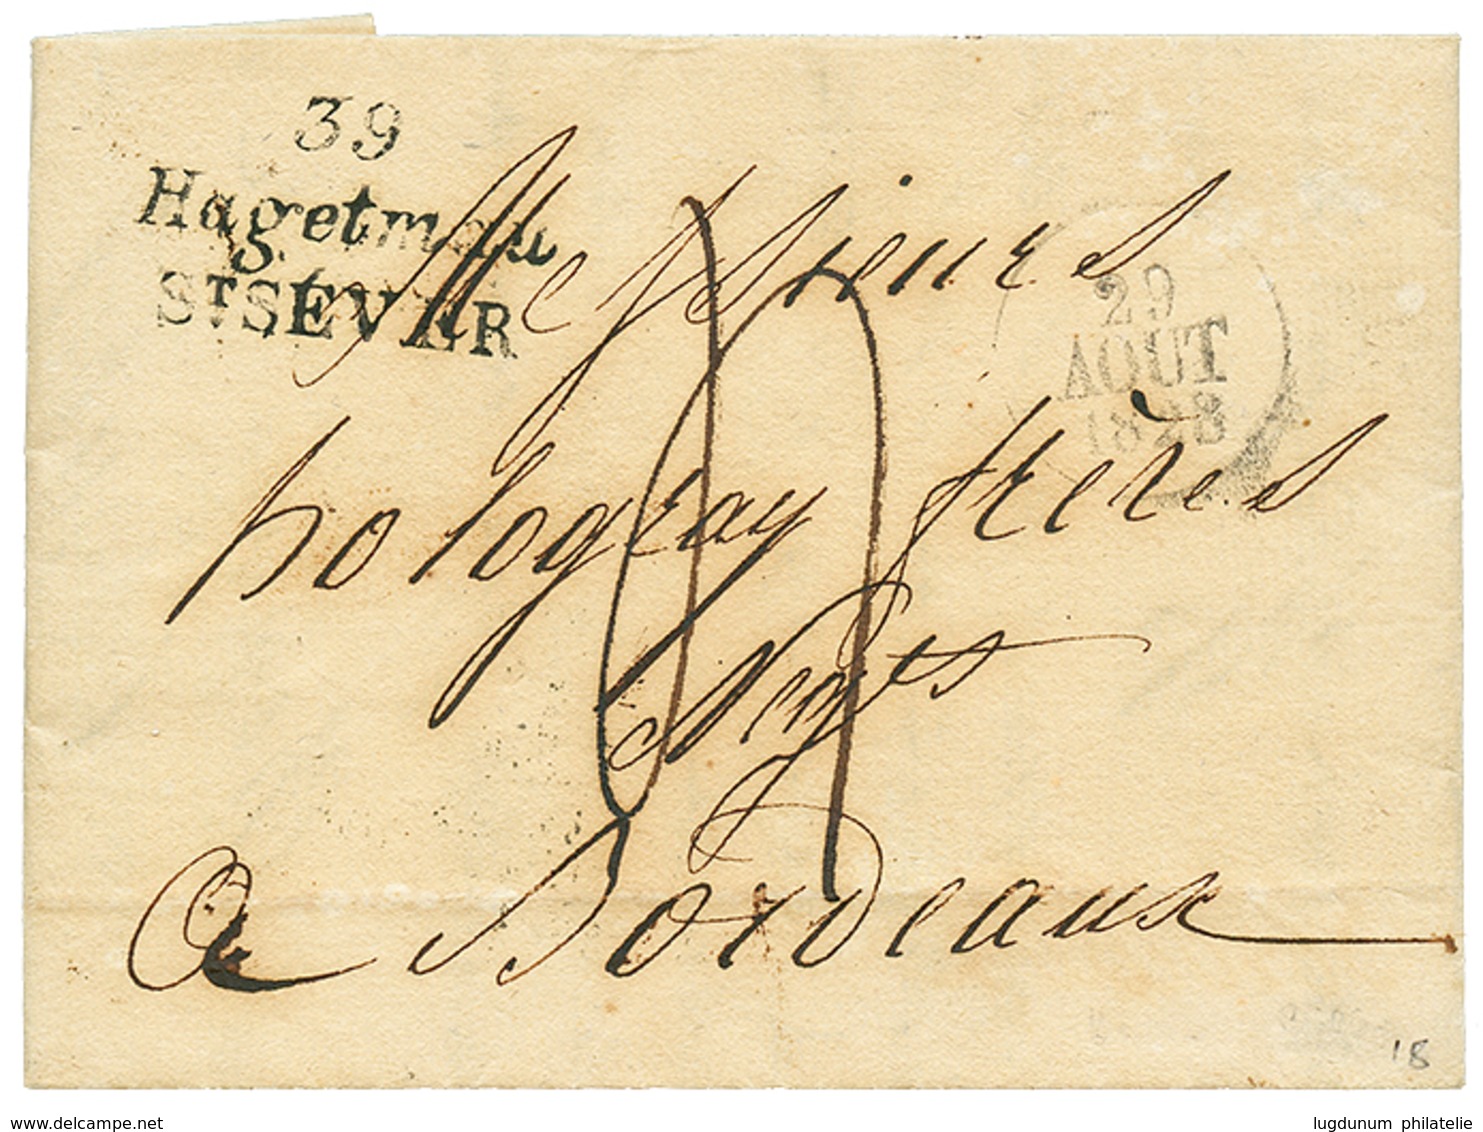 39
Hagetmau
ST SEVER
29
AOUT
1828
Messieurs
frères
Negts
a Bordeaux
18
delcampe.net
lugdunum philatelie